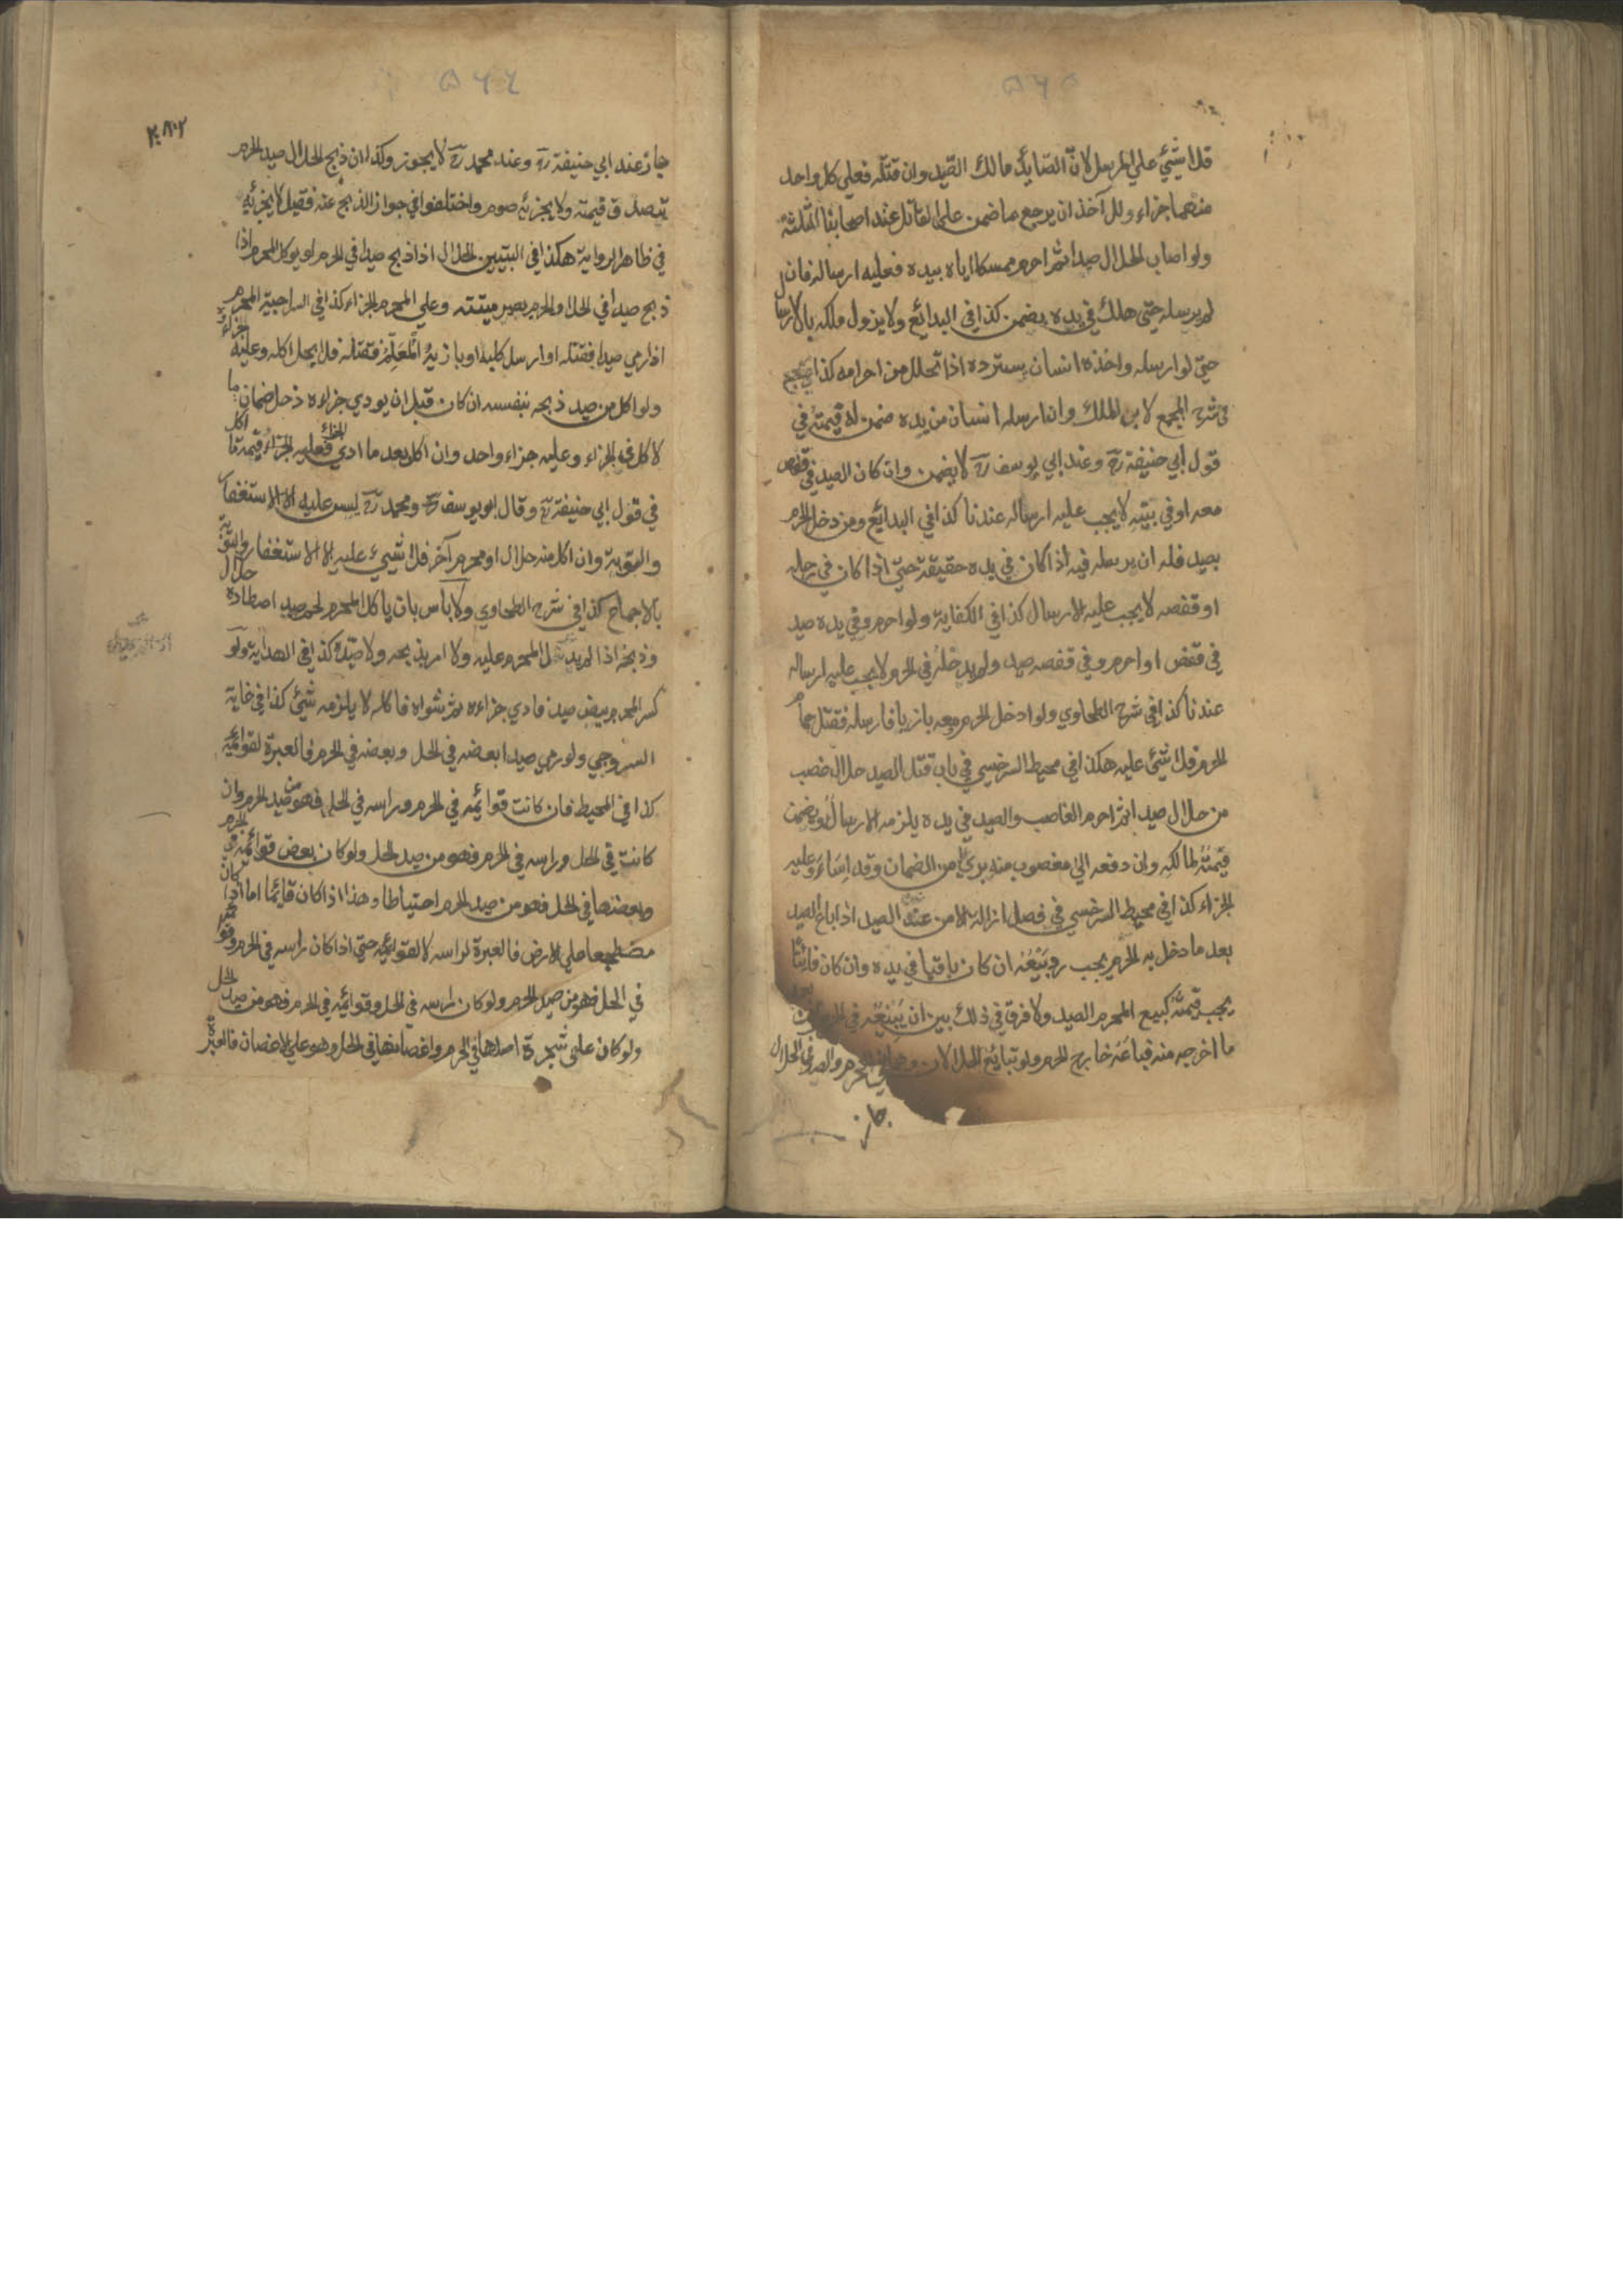 ۵۶۵
فلا شيئ علي المرسل لانّ الصّايد مالك الصّيد وان قتله فعلي كل واحد
منهما جزاء وللآخذ ان يرجع بما ضمن علي القاتل عند اصحابنا الثلثة
ولو اصاب الحلال صيدا ثم احرم ممسكا اياه بيده فعليه ارساله فان
لم يرسله حتي هلك في يده يضمن كذا في البدائع ولا يزول ملكه بالارسال
حتي لو ارسله واخذه انسان يسترده اذا تحلل من احرامه كذا
في شرح المجمع لابن الملك وان ارسله انسان من يده ضمن له قيمته في
قول ابي حنيفة رح وعند ابي يوسف رح لا يضمن وان كان الصيد في قفص
معه او في بيته لا يجب عليه ارساله عندنا كذا في البدائع ومن دخل الحرم
بصيد فله ان يرسله فيه اذا كان في يده حقيقة حتي اذا كان في رحله
او قفصه لا يجب عليه الارسال كذا في الكفاية ولو احرم وفي يده صيد
في قفص او احرم وفي قفصه صيد ولم يدخله في الحرم لا يجب عليه ارساله
عندنا كذا في شرح الطحاوي ولو ادخل الحرم معه بازيا فارسله فقتل حمام
الحرم فلا شيئ عليه هكذا في محيط السرخسي في باب قتل الصيد حلال غصب
من حلال صيدا ثم احرم الغاصب والصيد في يده يلزمه الارسال ويضمن
قيمته لمالكه وان دفعه الي مغصوب منه بري من الضمان وقد اساء وعليه
الجزاء كذا في محيط السرخسي في فصل ازالة الامن عن الصيد اذا باع الصيد
بعد ما دخل به الحرم يجب رد بيعه ان كان باقيا في يده وان كان فائتا
يجب قيمته كبيع المحرم الصيد ولا فرق في ذلك بين ان يبيعه في الحرم او بعد
ما اخرجه منه فباعه خارج الحرم ولو تبايع الحلالان وهما في الحرم والصيد في الحل
جاز
۵۶۶
جاز عند ابي حنيفة رح وعند محمد رح لا يجوز وكذا ان ذبح الحلال صيد الحرم
يتصدق قيمته ولا يجزئه صوم واختلفوا في جواز الذبح عنه فقيل لا يجزئه
في ظاهر الرواية هكذا في التبيين الحلال اذا ذبح صيدا في الحرم او يوكل المحرم اذا
ذبح صيدا في الحل او الحرم يصير ميتة وعلي المحرم الجزاء كذا في السراجية المحرم
اذا رمي صيدا فقتله او ارسل كلبه او بازيه المعلم فقتله فلا يحل اكله وعليه الجزاء
ولو اكل من صيد ذبحه بنفسه ان كان قبل ان يودي جزاءه دخل ضمان ما
اكل في الجزاء وعليه جزاء واحد وان اكل بعد ما ادي الجزاء فعليه قيمة ما اكل
في قول ابي حنيفة رح وقال ابو يوسف رح ومحمد رح ليس عليه الا الاستغفار
والتوبة وان اكل منه حلال او محرم آخر فلا شيئ عليه الا الاستغفار والتوبة
بالاجماع كذا في شرح الطحاوي ولا باس بان ياكل المحرم لحم صيد اصطاده حلال
وذبحه اذا لم يدل المحرم عليه ولا امر بذبحه ولا صيده كذا في الهداية ولو
كسر المحرم بيض صيد فادي جزاءه ثم شواه فاكله لا يلزمه شيئ كذا في غاية
السروجي ولو رمي صيدا بعضه في الحل وبعضه في الحرم فالعبرة لقوائمه
كذا في المحيط فان كانت قوائمه في الحرم وراسه في الحل فهو من صيد الحرم وان
كانت في الحل وراسه في الحرم فهو من صيد الحل ولو كان بعض قوائمه في الحرم
وبعضها في الحل فهو من صيد الحرم احتياطا وهذا اذا كان قائما اما اذا كان
مضطجعا علي الارض فالعبرة لراسه لا لقوائمه حتي اذا كان راسه في الحرم وقوائمه
في الحل فهو من صيد الحرم ولو كان راسه في الحل وقوائمه في الحرم فهو من صيد الحل
ولو كان علي شجرة اصلها في الحرم واغصانها في الحل وهو علي الاغصان فالعبرة